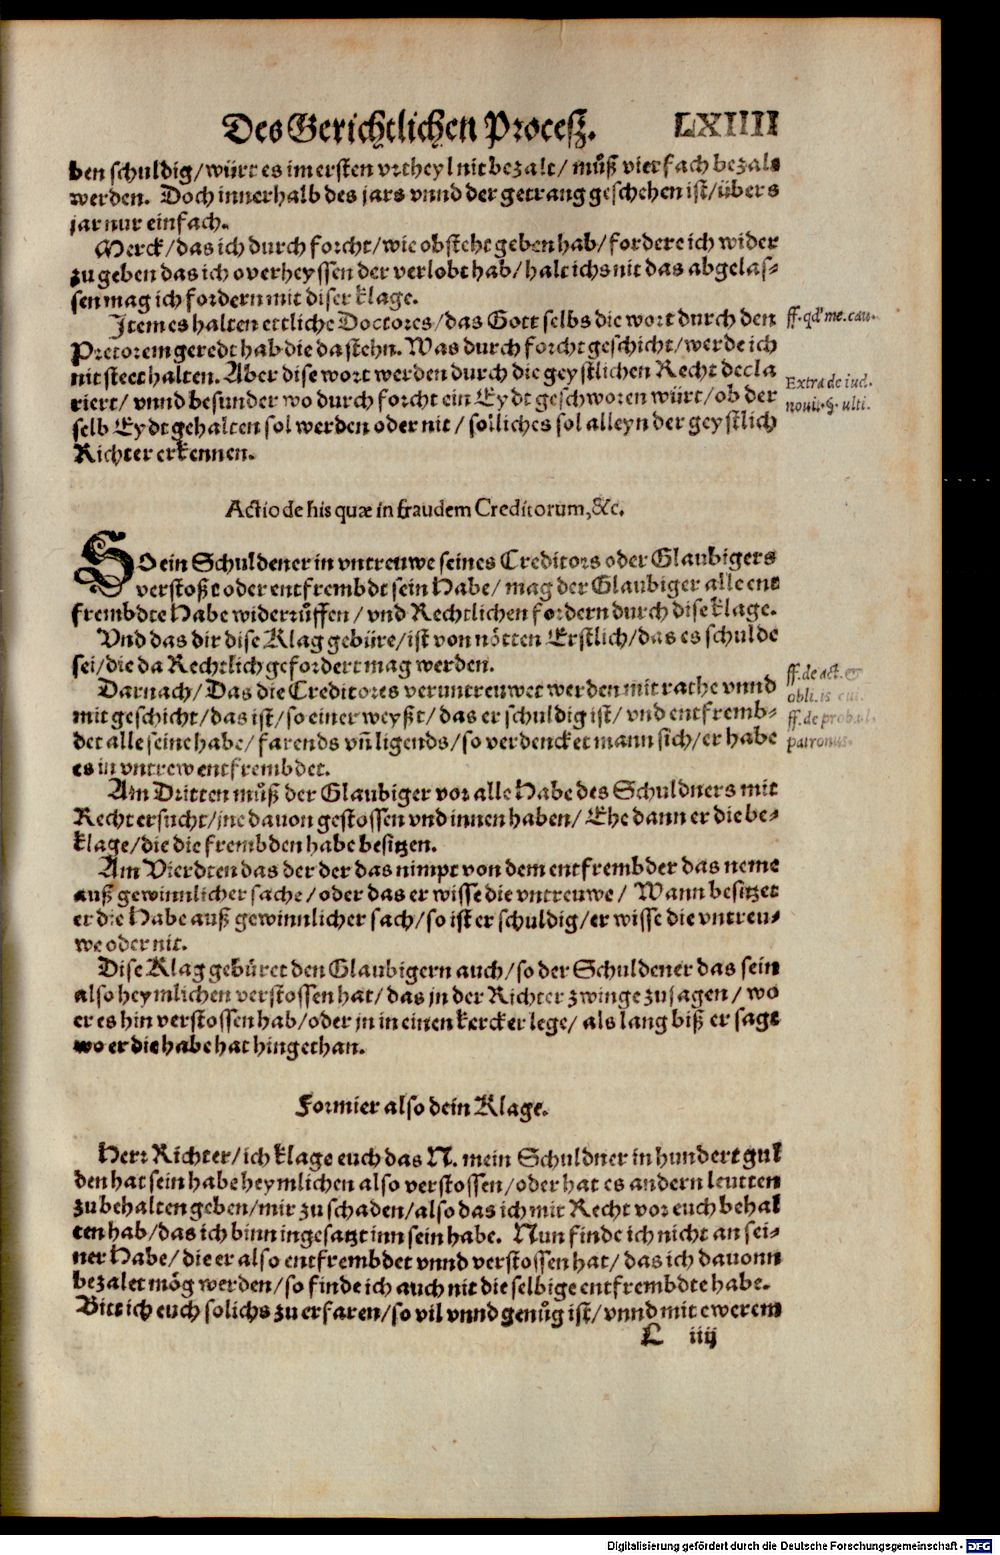 Des Gerichtlichen Procesz. LXIIII
ben schuldig/würt es im ersten vrtheyl nit bezalt/ můß vierfach bezalt
werden. Doch innerhalb des jars vnnd der getrang geschehen ist/übers
jar nur einfach.
Merck/das ich durch forcht/wie obsteht geben hab/fordere ich wider
zu geben das ich overheyssen der verlobt hab/halt ichs nit das abgelas-
sen mag ich fordern mit diser klage.
Item es halten ettliche Doctores/das Gott selbs die wort durch den
ff. qd' me. cau.
Pretorem geredt hab die da stehn. Was durch forcht geschicht/werde ich
nit steet halten. Aber dise wort werden durch die geystlichen Recht decla
Extra de iud.
riert/ vnnd besunder wo durch forcht ein Eydt geschworen würt/ob der
noui. §. ulti.
selb Eydt gehalten sol werden oder nit/ solliches sol alleyn der geystlich
Richter erkennen.
Actio de his quæ in fraudem Creditorum, &c.
SO ein Schuldener in vntreuwe seines Creditors oder Glaubigers
verstoßt oder entfrembdt sein Habe/ mag der Glaubiger alle ent
frembdte Habe widerrůffen/ vnd Rechtlichen fordern durch dise klage.
Vnd das dir dise Klag gebüre/ist von nötten Erstlich/das es schulde
sei/die da Rechtlich gefordert mag werden.
ff. de act. &
Darnach/Das die Creditores veruntreuwet werden mit rathe vnnd
obli. is cui.
mit geschicht/das ist/so einer weyßt/das er schuldig ist/ vnd entfremb-
ff. de probat.
det alle seine habe/ farends vñ ligends/so verdencket mann sich/er habe
patronus.
es in vntrew entfrembdet.
Am Dritten můß der Glaubiger vor alle Habe des Schuldners mit
Recht ersucht/jne dauon gestossen vnd innen haben/ Ehe dann er die be-
klage/die die frembden habe besitzen.
Am Vierdten das der der das nimpt von dem entfrembder das neme
auß gewinnlicher sache/oder das er wisse die vntreuwe/ Wann besitzet
er die Habe auß gewinnlicher sach/so ist er schuldig/er wisse die vntreu-
we oder nit.
Dise Klag gebüret den Glaubigern auch/so der Schuldener das sein
also heymlichen verstossen hat/das jn der Richter zwinge zu sagen/ wo
er es hin verstossen hab/oder jn in einen kercker lege/ als lang biß er sage
wo er die habe hat hingethan.
Formier also dein Klage.
Herr Richter/ich klage euch das N. mein Schuldner in hundert gul
den hat sein habe heymlichen also verstossen/oder hat es andern leutten
zu behalten geben/mir zu schaden/also das ich mit Recht vor euch behal
ten hab/das ich binn ingesatzt inn sein habe. Nun finde ich nicht an sei-
ner Habe/die er also entfrembdet vnnd verstossen hat/das ich dauonn
bezalet mög werden/so finde ich auch nit die selbige entfrembdte habe.
Bitt ich euch solichs zu erfaren/so vil vnnd genůg ist/vnnd mit ewerem
L iiij
Digitalisierung gefördert durch die Deutsche Forschungsgemeinschaft - DFG